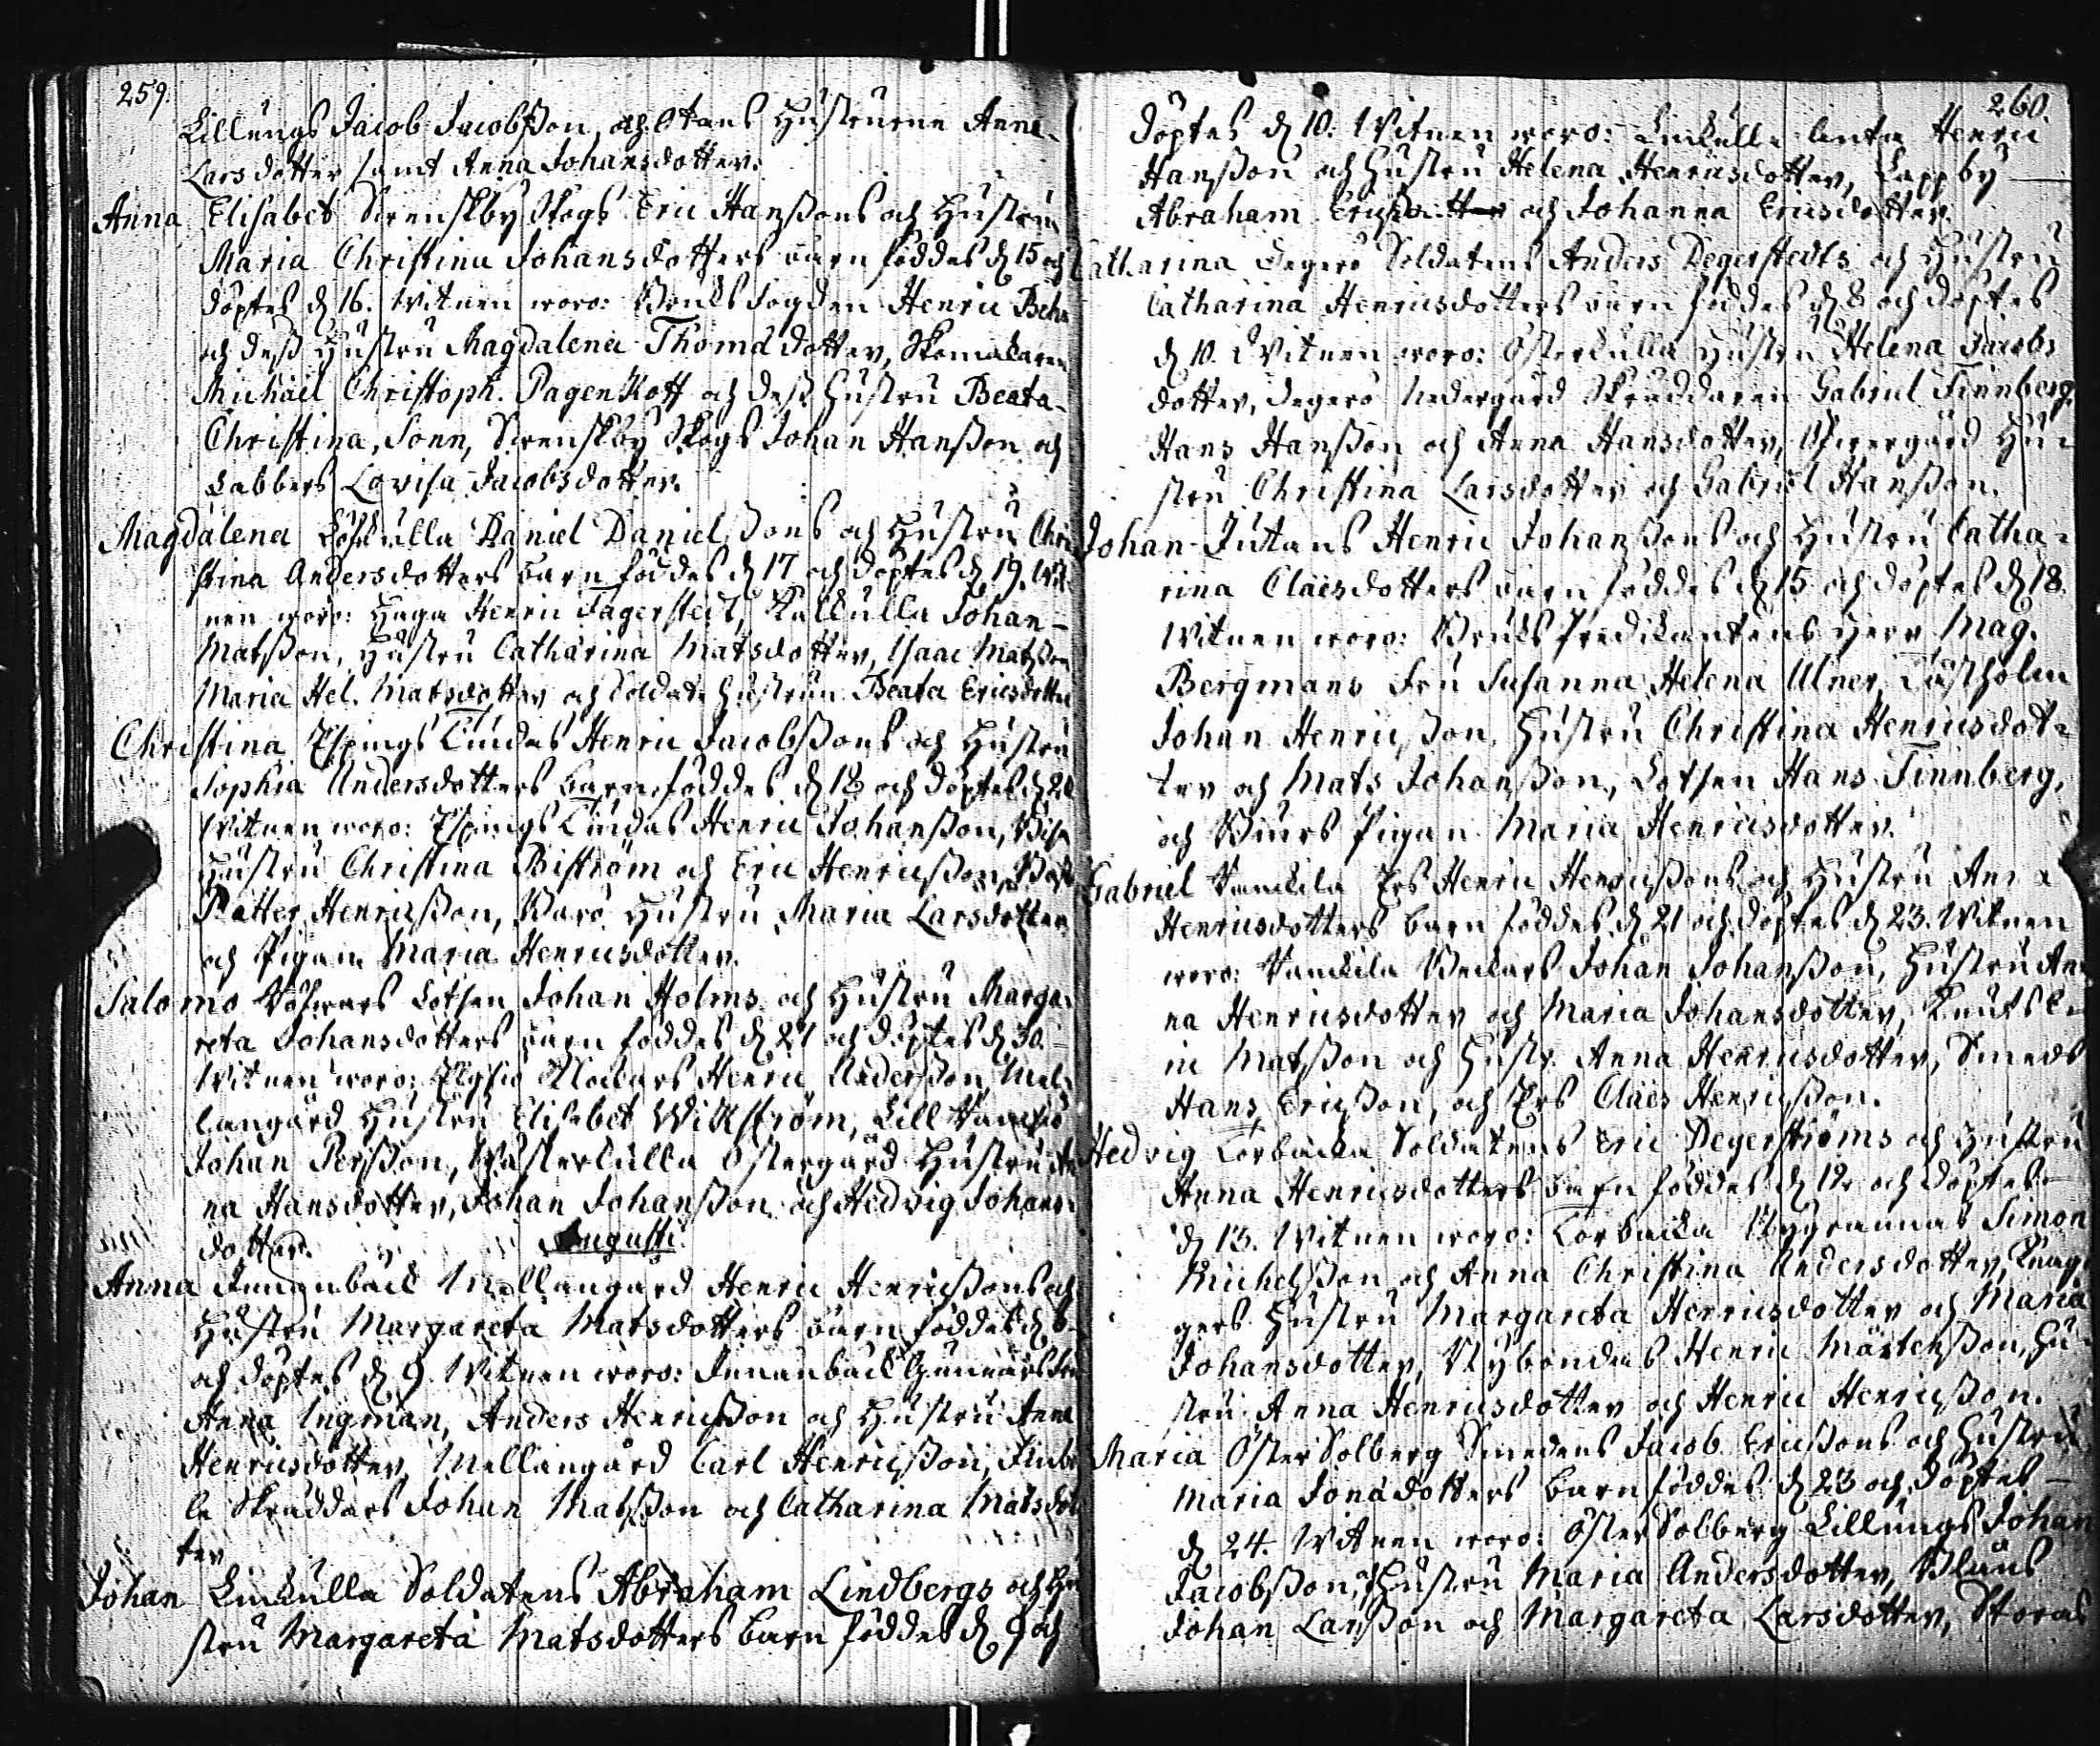 259.
Lillungs Jacob Jacobsson, och Hustrurne Anna
Larsdotter samt Anna Johansdotter.
Anna Elisabet Svenskby Skogs Eric Hanssons och Hustru
Maria Christina Johansdotters barn föddes d 15 och
döptes d 16. Witnen woro: Bruks Fogden Henric Behm
och dess Hustru Magdalena Thomædotter, Skomakaren
Michael Christoph. Pagenkoff och dess Hustru Beata
Christina, Svenskby Skogs Johan Hansson och
Labbers Lovisa Jacobsdotter.
Magdalena Daniel Danielssons och Hustru Chri
stina Andersdotters barn föddes d 17 och döptes d 19. Wit
nen woro: Haga Henric Fagerstedt, Johan
Matsson, Hustru Catharina Matsdotter, Isaac Matsson
Maria Hel. Matsdotter och Soldats Hustrun Beata Ericsdotter
Christina Espings Lindas Henric Jacobssons och Hustru
Sophia Andersdotters barn föddes d 18 och döptes d
Witnen woro: Espings Lindas Henric Johansson,
Hustru Christina Biström och Eric Henricsson,
Petter Henricsson, Hustru Maria Larsdotter
och Pigan Maria Henricsdotter.
Salomo Lotsen Johan Holms och Hustru Marga-
reta Johansdotters barn föddes d 27 och döptes d 30.
Witnen woro: Elgsjö Klockars Henric Andersson, Mel-
langård Hustru Elisabet Wikström, Lill
Johan Persson, Westerkulla Östergård Hustru An
na Hansdotter, Johan Johansson och Hedvig Johans-
dotter.
Augusti
Anna Innanbäck Mellangård Henric Henricssons och
Hustru Margareta Matsdotters barn föddes d 8
och döptes d 9. Witnen woro: Innanbäck Gunnars
Anna Ingman, Anders Henricsson och Hustru Anna
Henricsdotter, Mellangård Carl Henricsson,
le Skräddars Johan Matsson och Catharina Matsdot
ter
Johan Soldatens Abraham Lindbergs och Hu
stru Margareta Matsdotters barn föddes d 9 och
260.
döptes d 10. Witnen woro: Henric
Hansson och Hustru Helena Henricsdotter, Lappby
Abraham och Johanna Ericsdotter
Catharina Degerö Soldatens Anders Degerstedts och Hustru
Catharina Henricsdotters barn föddes d 8 och döptes
d 10. Witnen woro: Österkulla Hustru Helena Jacobs
dotter, Degerö Nedergård Skräddaren Gabriel Finnberg,
Hans Hansson och Anna Hansdotter, Öfvergård Hu-
stru Christina Larsdotter och Gabriel Hansson.
Johan Jutans Henric Johanssons och Hustru Catha-
rina Claësdotters barn föddes d 15 och döptes d 18.
Witnen woro: Bruks Predikantens Herr Mag.
Bergmans Fru Susanna Helena Ulner,
Johan Henricsson, Hustru Christina Henricsdot-
ter och Mats Johansson, Lotsen Hans Finnberg,
och Pigan Maria Henricsdotter.
Gabriel Ers Henric Henricssons och Hustru Anna
Henricsdotters barn föddes d 21 och döptes d 23. Witnen
woro: Johan Johansson, Hustru An
na Henricsdotter och Maria Johansdotter, Knuts E-
ric Matsson och Hustr. Anna Henricsdotter, Smeds
Hans Ericsson, och Ers Claës Henricsson.
Hedvig Torbacka Soldatens Eric Degerströms och Hustru
Anna Henricsdotters barn föddes d 12 och döptes
d 13. Witnen woro: Torbacka Simon
Michelsson och Anna Christina Andersdotter,
gers Hustru Margareta Henricsdotter och Maria
Johansdotter, Nybondas Henric Mårtensson, Hu-
stru Anna Henricsdotter och Henric Henricsson.
Maria Öster Solberg Smedens Jacob Ericssons och Hustru
Maria Jonædotters barn föddes d 23 och döptes
d 24. Witnen woro: Öster Solberg Lillungs Johan
Jacobsson, och Hustru Maria Andersdotter,
Johan Larsson och Margareta Larsdotter, Storas